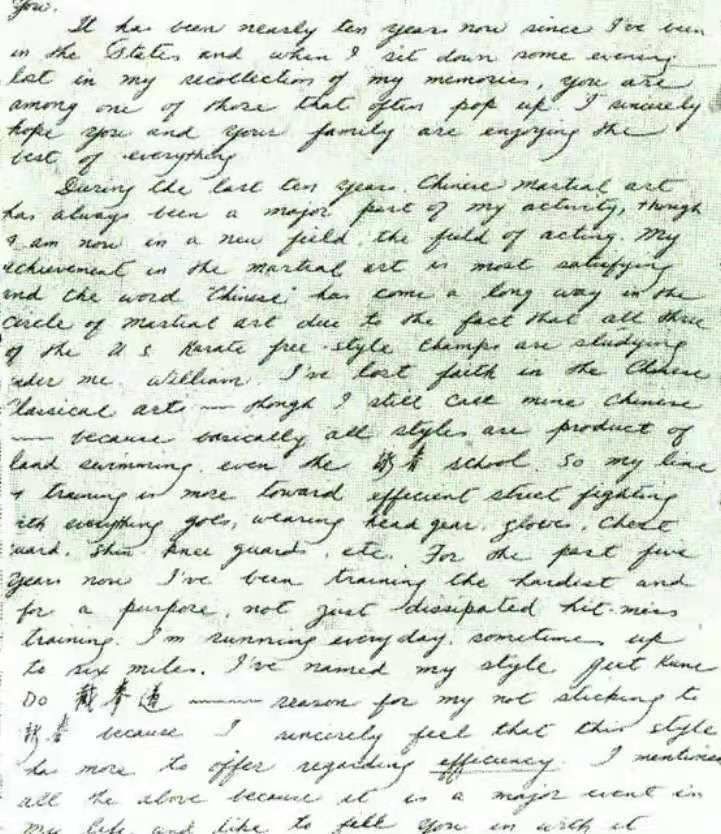 you.
It has been nearly ten years now since I've been
in the States and when I sit down some evening
lost in my recollection of my memories, you are
among one of those that often pop up. I sincerely
hope you and your family are enjoying the
best of everything
During the last ten years, Chinese martial art
has always been a major part of my activity, though
I am now in a new field, the field of acting. My
achievement in the martial art is most satisfying
and the word 'Chinese' has come a long way in the
circle of martial art due to the fact that all three
of the U S. Karate free-style champs are studying
under me. William, I've lost faith in the Chinese
classical arts — though I still call mine Chinese
— because basically all styles are product of
land swimming, even the 詠春 school. So my line
of training is more toward efficient street fighting
with everything goes, wearing head gear, gloves, chest
guard, shin knee guards, etc. For the past five
years now I've been training the hardest and
for a purpose, not just dissipated hit-miss
training. I'm running everyday, sometimes up
to six miles. I've named my style Jeet Kune
Do 截拳道 — reason for my not sticking to
詠春 because I sincerely feel that this style
has more to offer regarding efficiency. I mentioned
all the above because it is a major event in
my life, and like to fill you in with it